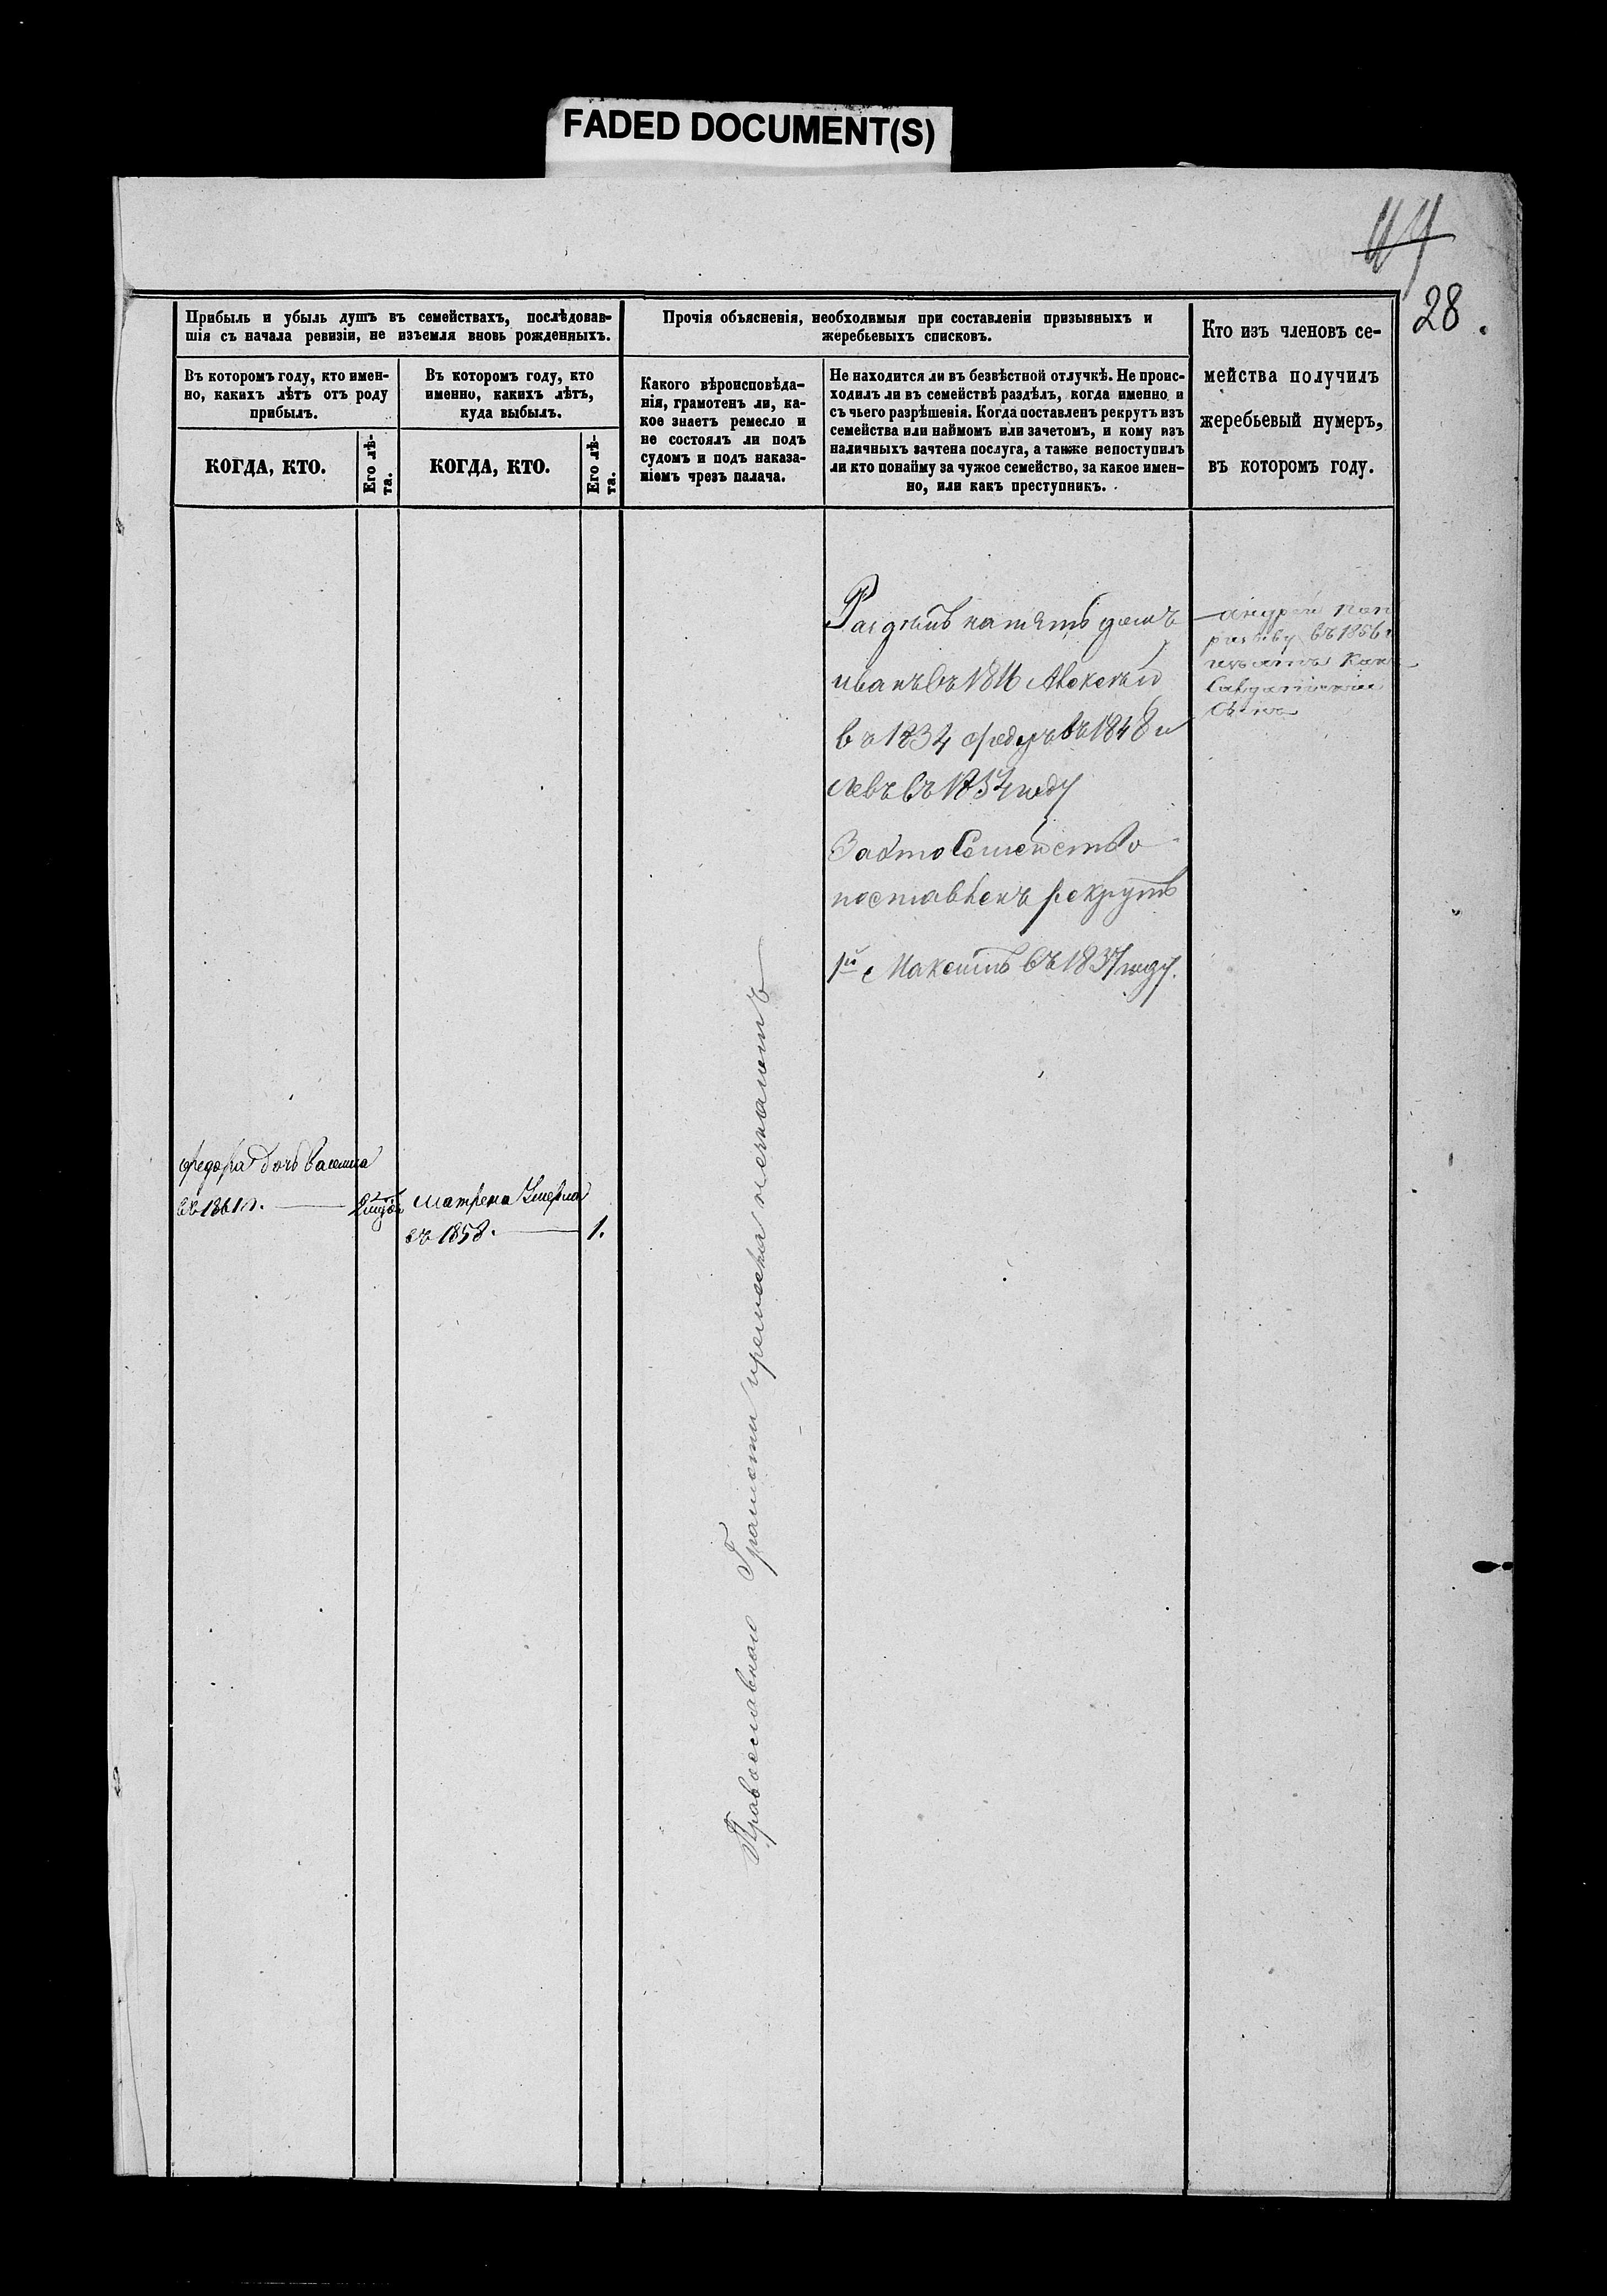 FADED DOCUMENT(S)
44
28.
Прибыль и убыль душъ въ семействахъ, послѣдовав-
шія съ начала ревизіи, не изъемля вновь рожденныхъ.
Въ которомъ году, кто имен-
но, какихъ лѣтъ отъ роду
прибылъ.
Въ которомъ году, кто
именно, какихъ лѣтъ,
куда выбылъ.
КОГДА, КТО.
Его лѣ-
та.
КОГДА, КТО.
Его лѣ-
та.
Прочія объясненія, необходимыя при составленіи призывныхъ и
жеребьевыхъ списковъ.
Какого вѣроисповѣда-
нія, грамотенъ ли, ка-
кое знаетъ ремесло и
не состоялъ ли подъ
судомъ и подъ наказа-
ніемъ чрезъ палача.
Не находится ли въ безвѣстной отлучкѣ. Не проис-
ходилъ ли въ семействѣ раздѣлъ, когда именно и
съ чьего разрѣшенія. Когда поставленъ рекрутъ изъ
семейства или наймомъ или зачетомъ, и кому изъ
наличныхъ зачтена послуга, а также непоступилъ
ли кто понайму за чужое семейство, за какое имен-
но, или какъ преступникъ.
Кто изъ членовъ се-
мейства получилъ
жеребьевый нумеръ,
въ которомъ году.
федора дочь Васелиса
въ 1861 г.
матрена Умерла
въ 1858.
1.
Православнаго Грамоти иремесла незнаютъ
на пять домъ
иванъ въ 1816 Алексѣй
въ 1834 федоръ въ 1848 и
левъ въ 1854 году
За это Семейство
поставленъ рекрутъ
1й Максимъ въ 1837 году.
андрей
въ 1856 г